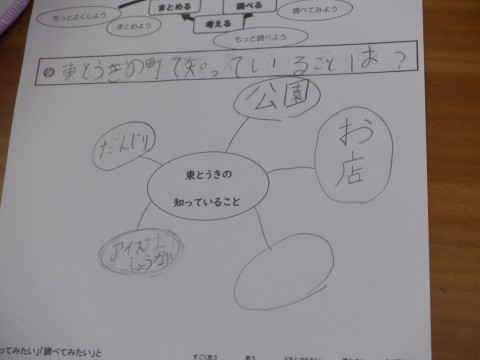 もっとよくしよう
まとめる
調べる
調べてみよう
まとめよう
考える
もっと調べよう
東とうきの町で知っていることは?
公園
だんじり
お店
東とうきの
知っていること
ってみたい」「調べてみたい」と
すごく思う
思う